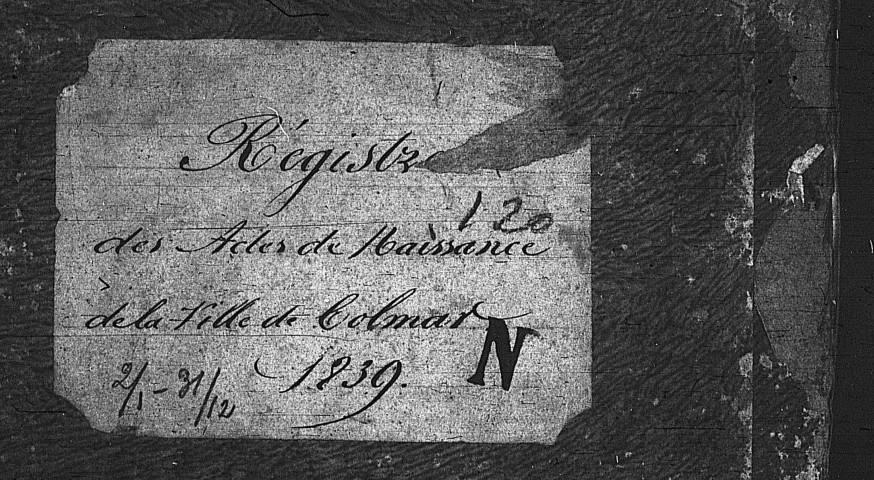 Régistre
120
des Actes de Naissance
de la Ville de Colmar
N
1839.
2/1 - 31/12